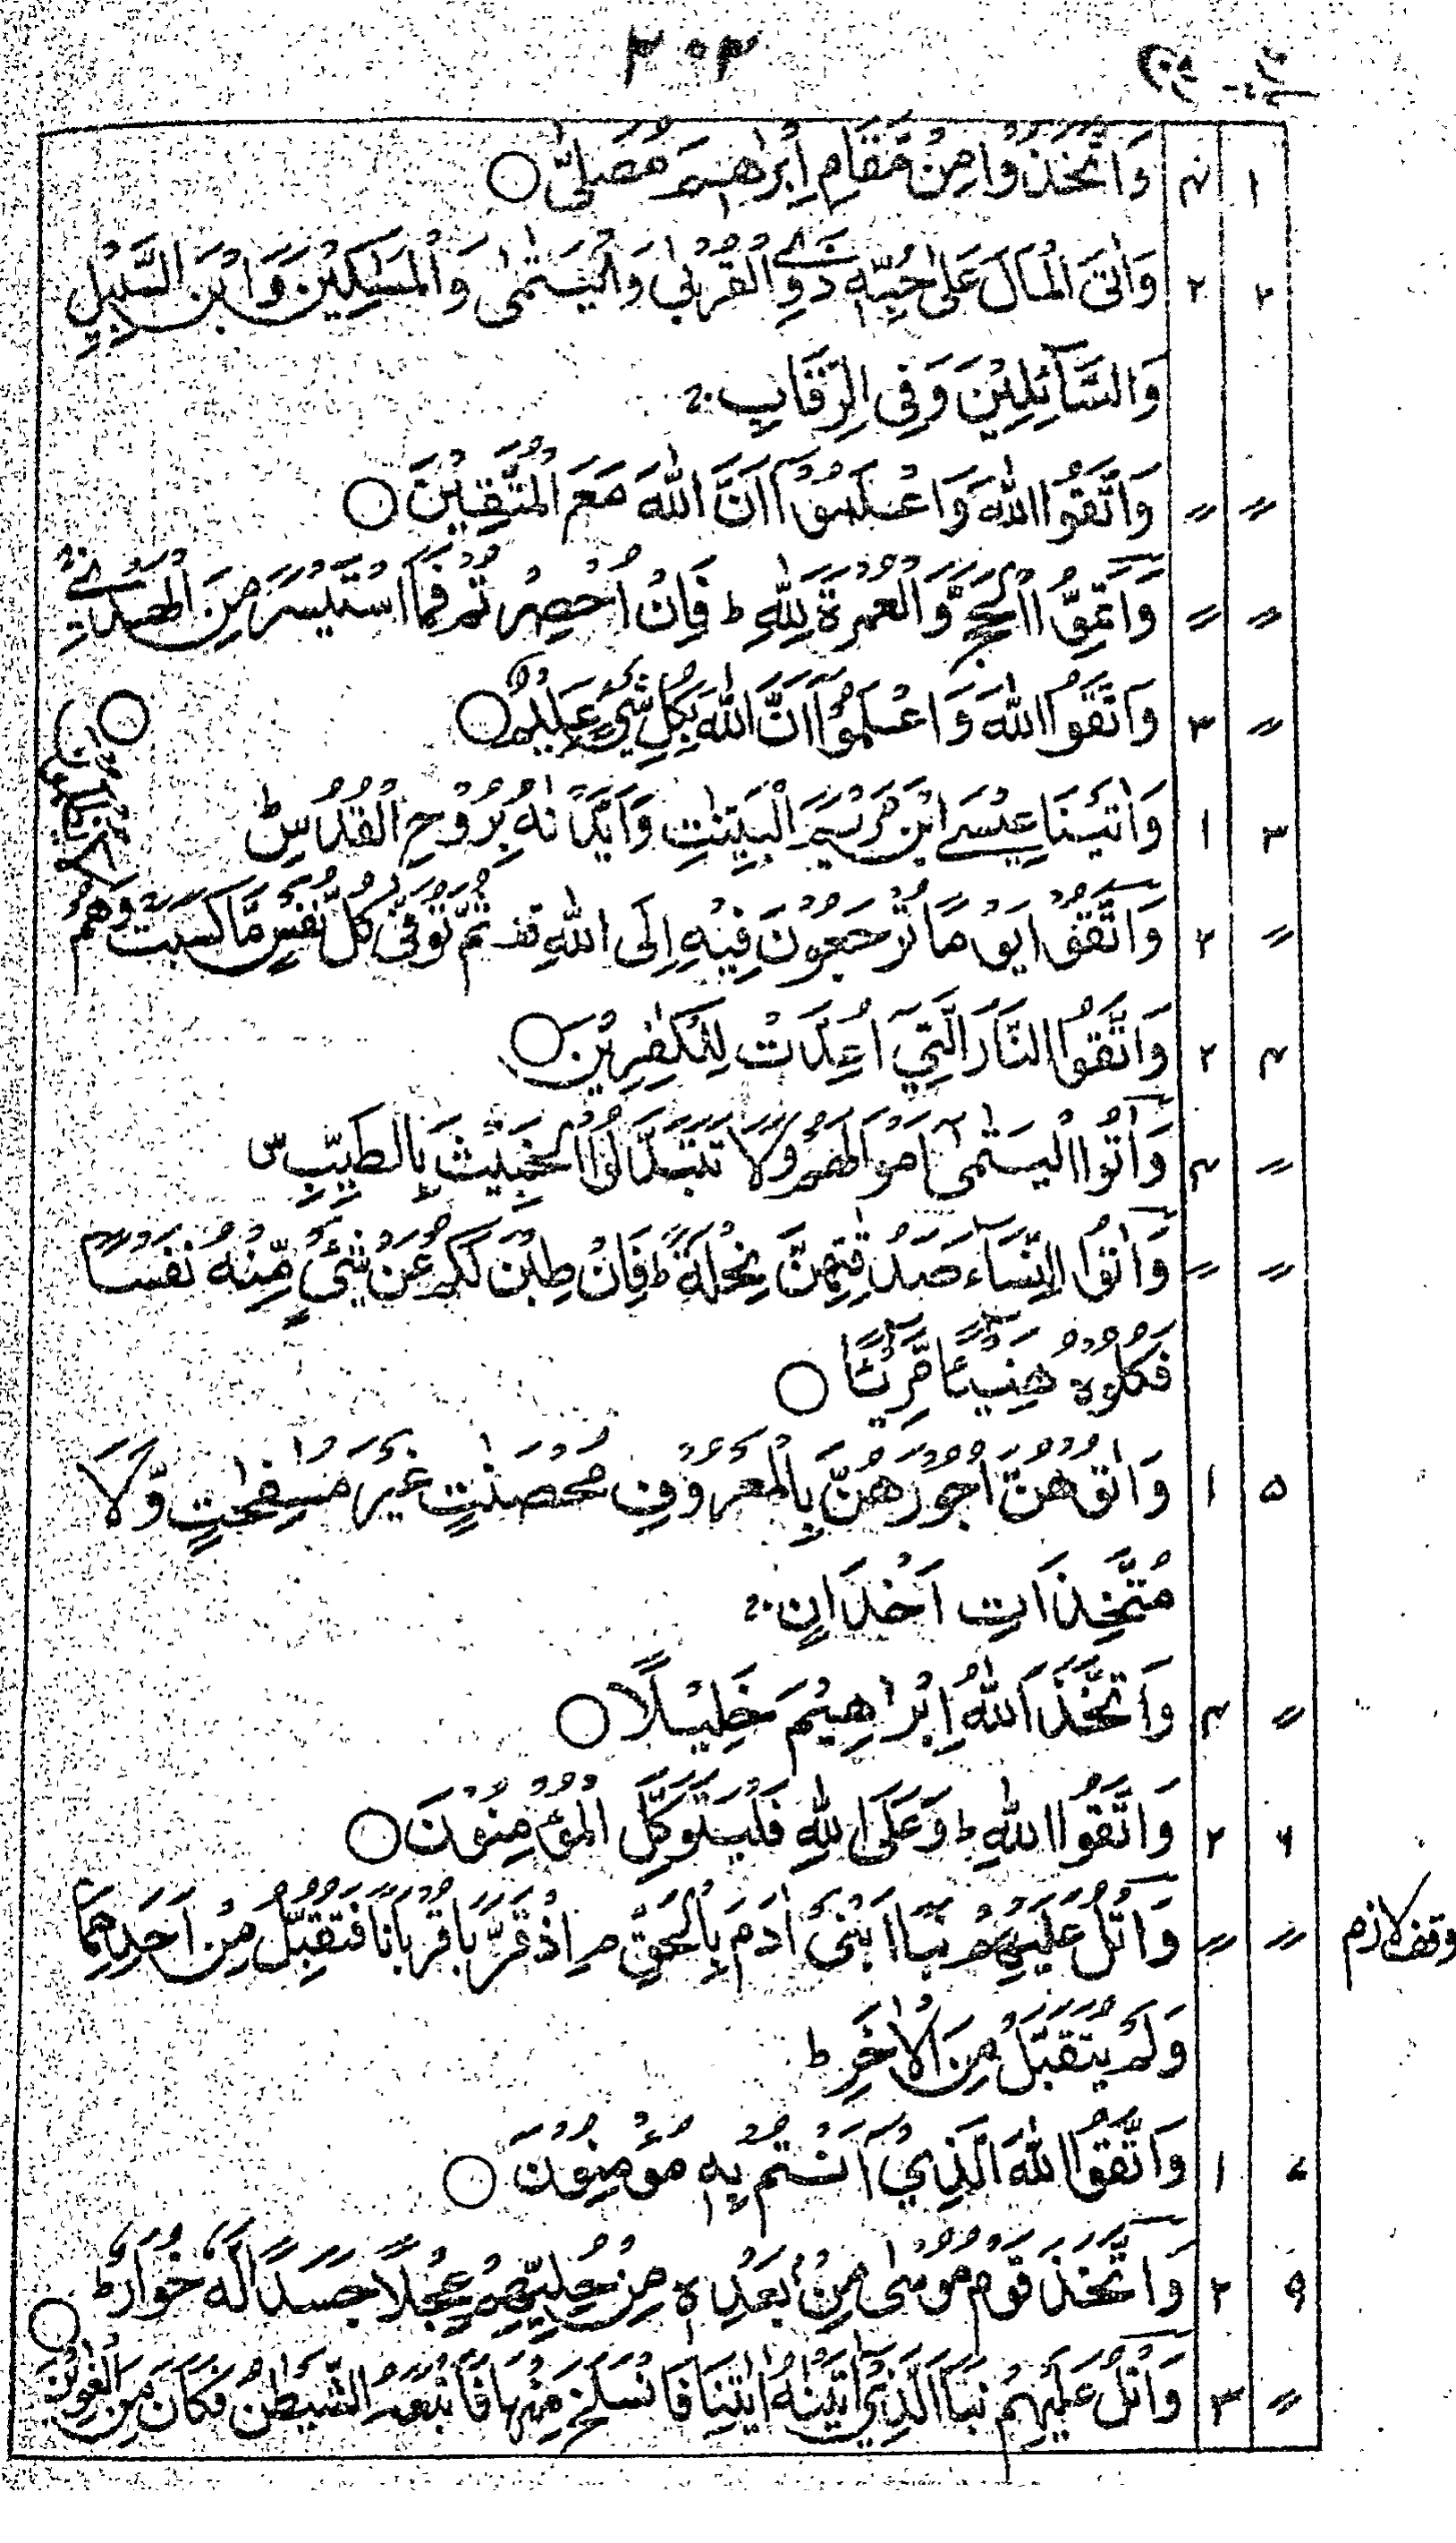 ۳۰۳
۱ ۴ وَاتَّخِذُوْا مِنْ مَّقَامِ اِبْرٰهِيْمَ مُصَلًّى ○
۲ ۲ وَاٰتَى الْمَالَ عَلٰى حُبِّهٖ ذَوِى الْقُرْبٰى وَالْيَتٰمٰى وَالْمَسٰكِيْنَ وَابْنَ السَّبِيْلِ
وَالسَّآئِلِيْنَ وَفِى الرِّقَابِ ج
〃 〃 وَاتَّقُوا اللّٰهَ وَاعْلَمُوْٓا اَنَّ اللّٰهَ مَعَ الْمُتَّقِيْنَ ○
〃 〃 وَاَتِمُّوا الْحَجَّ وَالْعُمْرَةَ لِلّٰهِ ط فَاِنْ اُحْصِرْتُمْ فَمَا اسْتَيْسَرَ مِنَ الْهَدْيِ ج
〃 ۳ وَاتَّقُوا اللّٰهَ وَاعْلَمُوْٓا اَنَّ اللّٰهَ بِكُلِّ شَيْءٍ عَلِيْمٌ ○
۳ ۱ وَاٰتَيْنَا عِيْسَى ابْنَ مَرْيَمَ الْبَيِّنٰتِ وَاَيَّدْنٰهُ بِرُوْحِ الْقُدُسِ ط
〃 ۲ وَاتَّقُوْا يَوْمًا تُرْجَعُوْنَ فِيْهِ اِلَى اللّٰهِ قف ثُمَّ تُوَفّٰى كُلُّ نَفْسٍ مَّا كَسَبَتْ وَهُمْ
لَا يُظْلَمُوْنَ ○
۴ ۲ وَاتَّقُوا النَّارَ الَّتِيْٓ اُعِدَّتْ لِلْكٰفِرِيْنَ ○
〃 ۴ وَاٰتُوا الْيَتٰمٰٓى اَمْوَالَهُمْ وَلَا تَتَبَدَّلُوا الْخَبِيْثَ بِالطَّيِّبِ ص
〃 〃 وَاٰتُوا النِّسَآءَ صَدُقٰتِهِنَّ نِحْلَةً ط فَاِنْ طِبْنَ لَكُمْ عَنْ شَيْءٍ مِّنْهُ نَفْسًا
فَكُلُوْهُ هَنِيْٓئًا مَّرِيْٓئًا ○
۵ ۱ وَاٰتُوْهُنَّ اُجُوْرَهُنَّ بِالْمَعْرُوْفِ مُحْصَنٰتٍ غَيْرَ مُسٰفِحٰتٍ وَّلَا
مُتَّخِذَاتِ اَخْدَانٍ ج
〃 ۴ وَاتَّخَذَ اللّٰهُ اِبْرَاهِيْمَ خَلِيْلًا ○
۶ ۲ وَاتَّقُوا اللّٰهَ ط وَعَلَى اللّٰهِ فَلْيَتَوَكَّلِ الْمُؤْمِنُوْنَ ○
〃 〃 وَاتْلُ عَلَيْهِمْ نَبَاَ ابْنَيْ اٰدَمَ بِالْحَقِّ م اِذْ قَرَّبَا قُرْبَانًا فَتُقُبِّلَ مِنْ اَحَدِهِمَا
وقف لازم
وَلَمْ يُتَقَبَّلْ مِنَ الْاٰخَرِ ط
۷ ۱ وَاتَّقُوا اللّٰهَ الَّذِيْٓ اَنْتُمْ بِهٖ مُؤْمِنُوْنَ ○
۹ ۲ وَاتَّخَذَ قَوْمُ مُوْسٰى مِنْۢ بَعْدِهٖ مِنْ حُلِيِّهِمْ عِجْلًا جَسَدًا لَّهٗ خُوَارٌ ط
〃 ۳ وَاتْلُ عَلَيْهِمْ نَبَاَ الَّذِيْٓ اٰتَيْنٰهُ اٰيٰتِنَا فَانْسَلَخَ مِنْهَا فَاَتْبَعَهُ الشَّيْطٰنُ فَكَانَ مِنَ الْغٰوِيْنَ ○